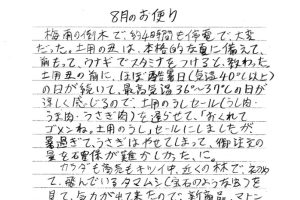 8月のお便り
梅雨の倒木で、約4時間も停電で、大変
だった。土用の丑は、本格的な夏に備えて、
前もって、ウナギでスタミナをつけると、教わった。
土用丑の前に、ほぼ酷暑日(気温40℃以上)
の日が続いて、最高気温36℃〜37℃の日が
涼しく感じるので、土用のうしセール(うし肉・
うま肉・うさぎ肉)を遅らせて、「おくれて
ゴメンね。土用のうし」セールにしましたが
暑過ぎて、うさぎはやせてしまって、御注文の
量を確保が難しかった、に。
カラダも商売もキツイ中、近くの林で、
飛んでいるタマムシ(宝石のような虫)を
見て、気力が出て来たので、新商品、マトン